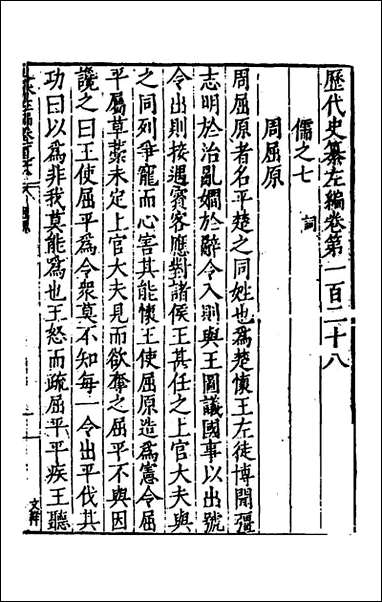 歷代史纂左編卷第一百二十八
儒之七 詞
周屈原
周屈原者名平楚之同姓也爲楚懷王左徒博聞彊
志明於治亂嫺於辭令入則與王圖議國事以出號
令出則接遇賓客應對諸侯王甚任之上官大夫與
之同列爭寵而心害其能懷王使屈原造爲憲令屈
平屬草藁未定上官大夫見而欲奪之屈平不與因
讒之曰王使屈平爲令衆莫不知每一令出平伐其
功曰以爲非我莫能爲也王怒而疏屈平平疾王聽